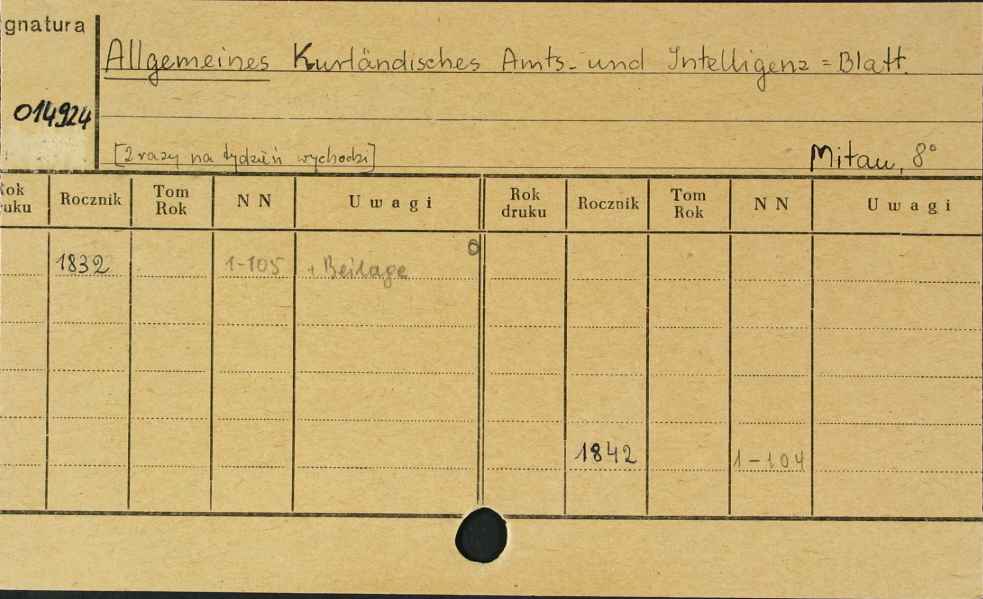 gnatura
Allgemeines Kurländisches Amts- und Intelligenz=Blatt.
014924
[2 razy na tydzień wychodzi] Mitau, 8°
Rok druku Rocznik Tom Rok N N Uwagi Rok druku Rocznik Tom Rok N N Uwagi
1832 1-105 + Beilage
1842 1-104